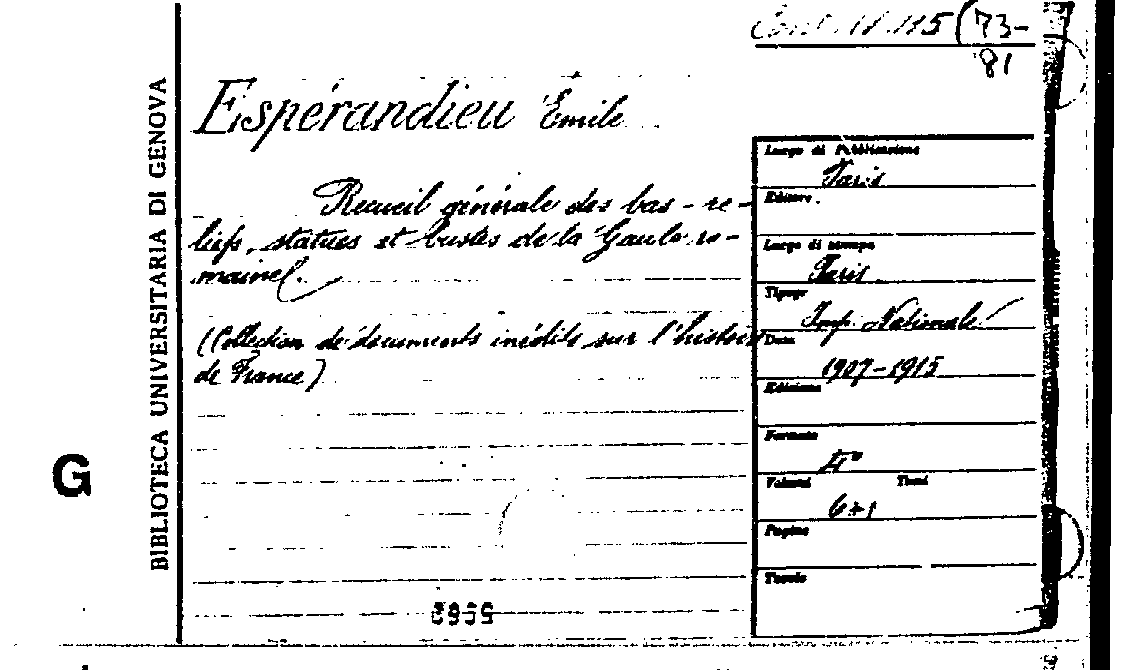 Cons. A. 115 (73-
81
Espérandieu Emile
Recueil générale des bas-re-
liefs, statues et bustes de la Gaule ro-
maine.
(Collection de documents inédits sur l'histoire
de France)
Luogo di Pubblicazione
Paris
Editore.
Luogo di stampa
Paris
Tipogr
Imp. Nationale
Data
1907-1915
Edizione
Formato
4°
Volumi Tomi
6+1
Pagine
Tavole
BIBLIOTECA UNIVERSITARIA DI GENOVA
G